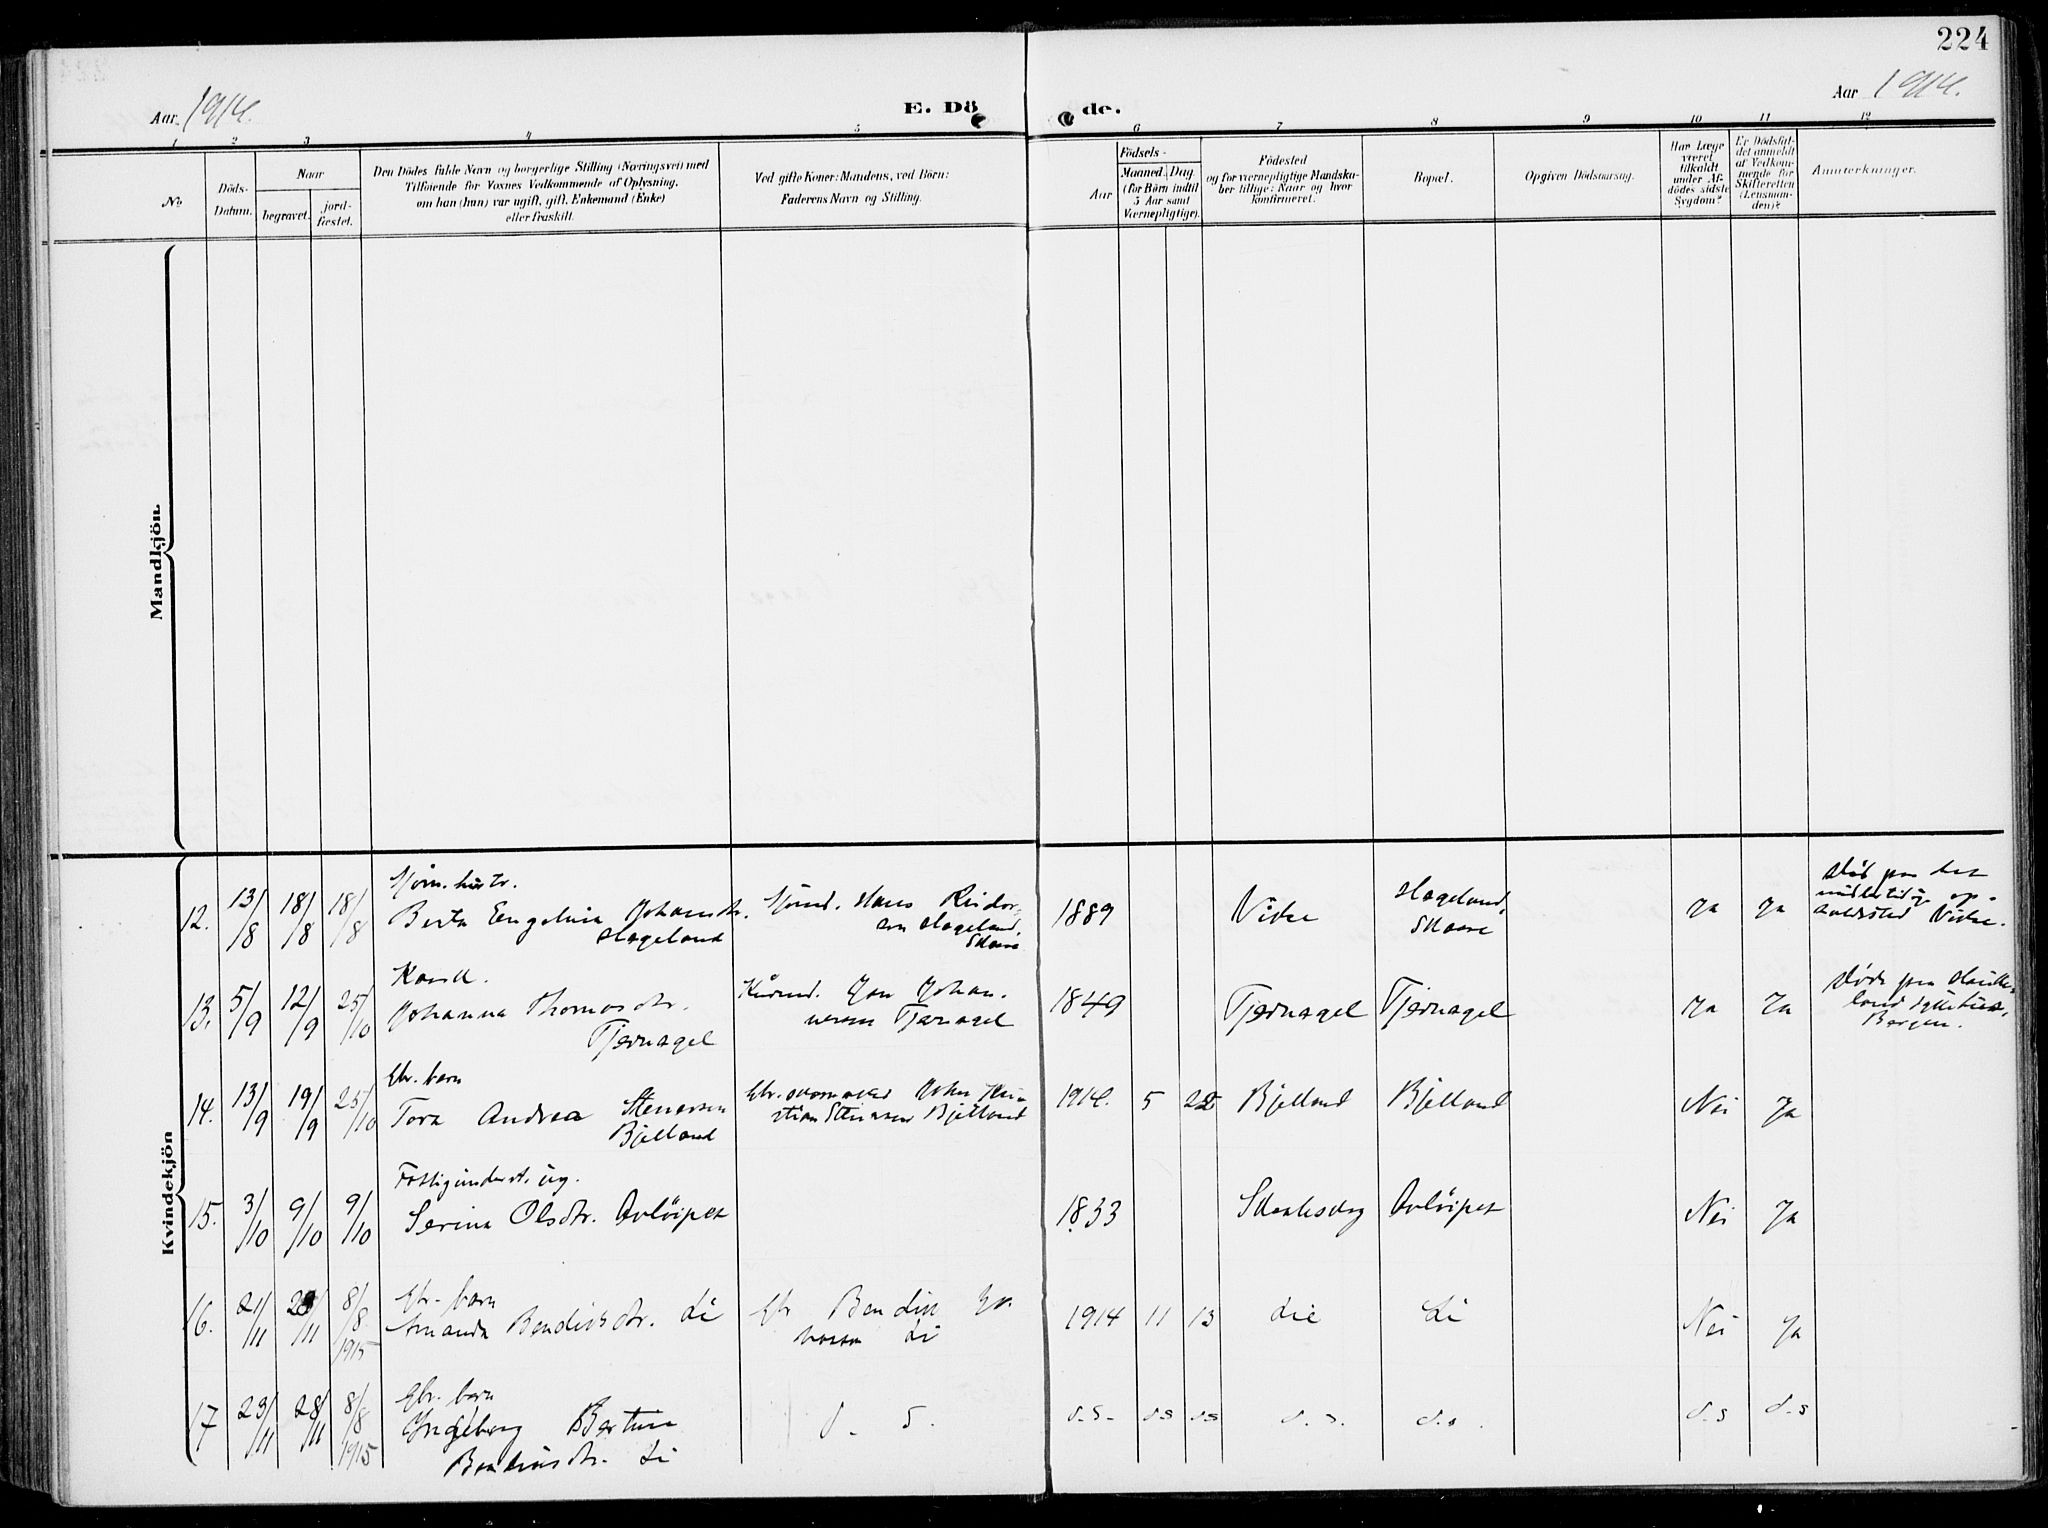 224
Aar 1914.
E. Dö de.
Aar 1914.
1 2 3 4 5 6 7 8 9 10 11 12
No
Döds-Datum.
Naar
begravet.
jord-fæstet.
Den Dödes fulde Navn og borgerlige Stilling (Næringsvei) med
Tilföiende for Voxnes Vedkommende af Oplysning,
om han (hun) var ugift, gift, Enkemand (Enke)
eller fraskilt.
Ved gifte Koner: Mandens, ved Börn:
Faderens Navn og Stilling.
Födsels-
Aar
Maaned.
Dag
(for Börn indtil
5 Aar samt
Værnepligtige).
Födested
og for værnepligtige Mandska-
ber tillige: Naar og hvor
konfirmeret.
Bopæl.
Opgiven Dödsaarsag.
Har Læge
været
tilkaldt
under Af-
dödes sidste
Sygdom?
Er Dödsfal-
det anmeldt
af Vedkom-
mende for
Skifteretten
(Lensman-
den)?
Anmærkninger.
Mandkjön.
Kvindekjön
12. 13/8 18/8 18/8
Berta Engelina Johansdtr.
Hageland
Hans
Hageland,
Skaare
1889
Hageland,
Skaare
Ja Ja
13. 5/9 12/9 25/10
Johanna Thomasdtr.
Tjernagel
Jon Johan-
nesen Tjernagel
1849 Tjernagel Tjernagel Ja Ja
Bergen.
14. 13/9 19/9 25/10
barn
Tora Andrea Stenersen
Bjelland
John Kri-
stian Stenersen Bjelland
1914. 5 22 Bjelland Bjelland Nei Ja
15. 3/10 9/10 9/10
ug.
Serina Olsdtr. Avløipet
1833 Avløipet Nei Ja
16. 21/11 28/11 8/8 1915
barn
Amanda Bendiksdtr. Li
Bendik
Li
1914 11 13 Lie Li Nei Ja
17 23/11 28/11 8/8 1915
barn
Ingeborg Bertine
Bendiksdtr. Li
d. s.
d. s. d s d s d. s. d. s. d. s d. s